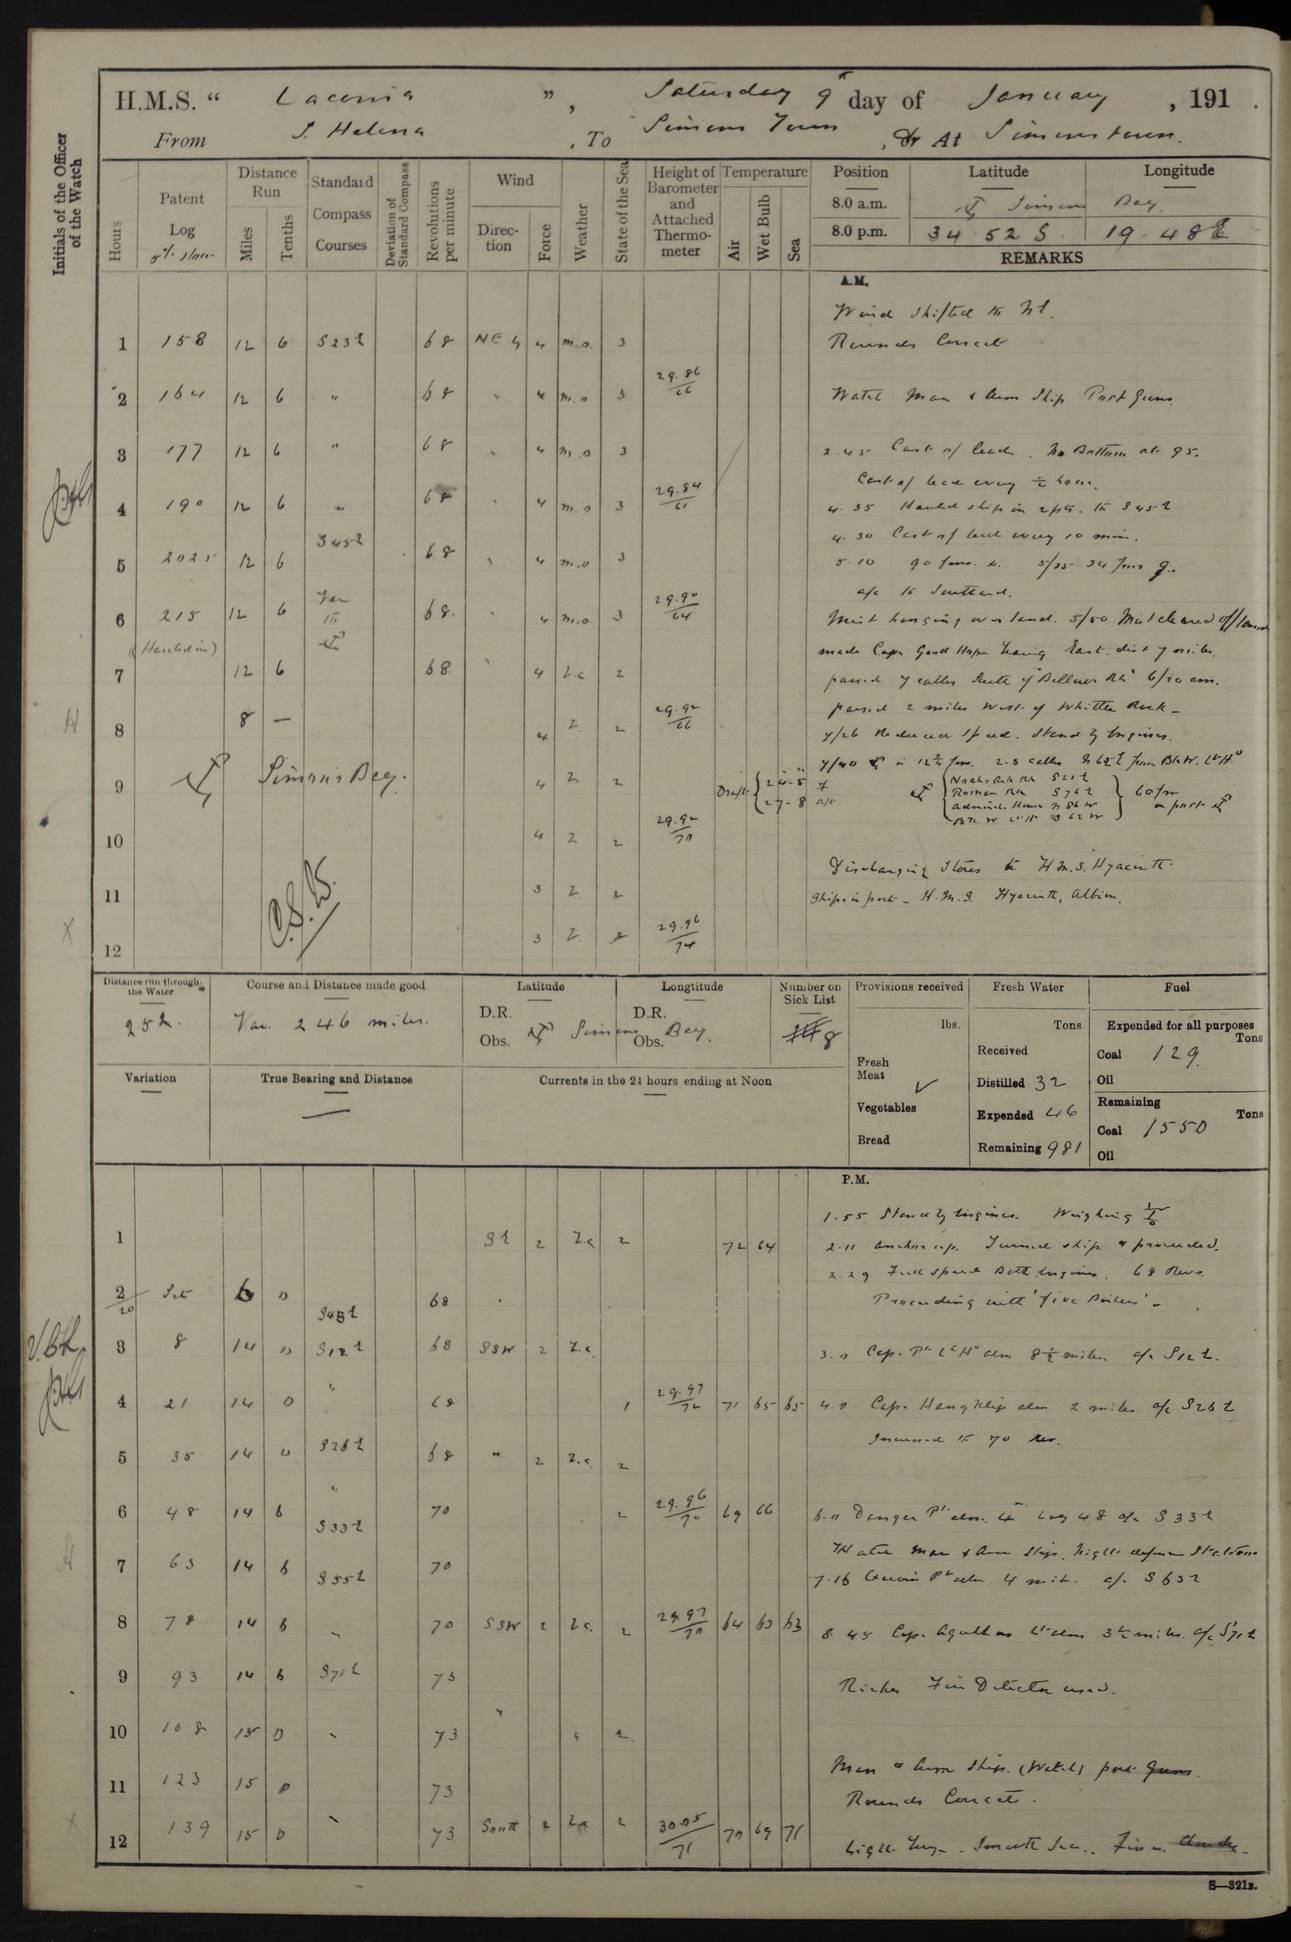 H.M.S. “ Laconia ”, Saturday 9th day of January, 191 .
From S. Helena, To Simons Town, Or At Simonstown.
Initials of the Officer of the Watch
Hours
Patent Log
Distance Run
Miles
Tenths
Standard Compass Courses
Deviation of Standard Compass
Revolutions per minute
Wind
Direction
Force
Weather
State of the Sea
Height of Barometer and Attached Thermometer
Temperature
Air
Wet Bulb
Sea
Position Latitude Longitude
8.0 a.m. Simons Bay.
8.0 p.m. 34 52 S 19. 48 E
REMARKS
A.M.
Wind shifted to NE.
1 158 12 6 S23E 68 NE 4 m.o. 3 Rounds Correct
29.86/66
2 164 12 6 " 68 " 4 m.o 3 Watch Man & Arm Ship Port Guns.
3 177 12 6 " 68 " 4 m.o 3 2.45 Cast of lead. No Bottom at 95.
Cast of lead every ½ hour.
29.84/61
4 190 12 6 " 68 " 4 m.o 3 4.35 Hauled ship in 2 pts. to S45E
S45E
4.30 Cast of lead every 10 min.
5 202.5 12 6 68 " 4 m.o 3 5.10 90 fms. 5/25 34 fms
a/c to Southard.
29.90/64
6 215 12 6 Var to 68. " 4 m.o. 3 Mist hanging over land. 5/50 Mist cleared off land
(Hauled in)
made Cape Good Hope bearing East. dist 7 miles.
7 12 6 68 " 4 Z.c 2 passed 7 cables South of "Bellows Rk" 6/20 am.
29.92/66
8 8 — 4 Z 2 passed 2 miles West of Whittle Rock -
7/26 Reduced Speed. Stand by Engines.
7/40 in 12½ fms. 2.3 cables
9 Simons Bay. 4 Z 2 Draft { 24-5 F 27-8 aft
Noahs Ark Rk S21E
Roman Rk S76E
Admirals House N86W
} 60 fm on port
29.92/70
10 4 Z 2
Discharging Stores to H.M.S. Hyacinth
11 3 Z 2 Ships in port - H.M.S. Hyacinth, Albion.
29.96/74
12 3 Z 2
C.S.W.
Distance run through the Water
252.
Course and Distance made good
Var. 246 miles.
Latitude
D.R.
Obs. Simons
Longtitude
D.R.
Obs. Bay.
Number on Sick List
8
Provisions received
lbs.
Fresh Meat
Vegetables
Bread
Fresh Water
Tons
Received
Distilled 32
Expended 46
Remaining 981
Fuel
Expended for all purposes
Tons
Coal 129.
Oil
Remaining
Tons
Coal 1550
Oil
Variation
True Bearing and Distance
Currents in the 24 hours ending at Noon
P.M.
1.55 Stand by Engines. Weighing
1 SE 2 Z.c 2 72 64 2.11 Anchor up. Turned ship & proceeded.
2.29 Full Speed Both Engines. 68 Revs.
2/20 Set 6 0 S48E 68 " Proceeding with 'five Boilers' -
3 8 14 0 S12E 68 SSW 2 Z.c. 3.0 Cape Pt Lt Ho abm 8½ miles a/c S12E.
4 21 14 0 " 68 1 29.97/72 71 65 65 4.0 Cape Hangklip abm 2 miles a/c S26E
Increased to 70 Rev.
5 35 14 0 S26E 68 " 2 Z.c. 2
6 48 14 6 " S33E 70 2 29.96/70 69 66 6.0 Danger Pt abm. 4m Log 48 a/c S33E
Watch Man & Arm Ship. Night defence Stations
7 63 14 6 S55E 70 7.16 Quoin Pt abm. 4 mil. a/c S63E
8 78 14 6 " 70 SSW 2 Z.c. 2 29.97/70 64 63 63 8.45 Cape Agulhas Lt abm 3½ miles. a/c S71E
9 93 14 6 S71E 73 Riches Fire Detector used.
10 108 15 0 " 73 " " 2
11 123 15 0 73 Man & Arm Ship. (Watch) port Guns.
Rounds Correct.
12 139 15 0 " 73 South 2 Z.c 2 30.05/71 70 69 71 Light Airs. Smooth Sea. Fine
S—321B.